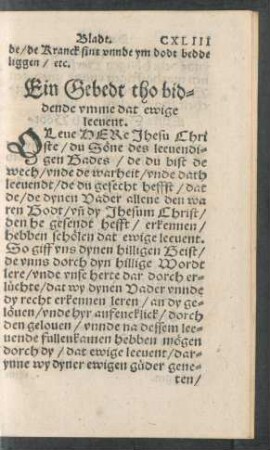 Bladt. CXLIII
de/de Kranck sint vnnde ym dodt bedde
liggen/ etc.
Ein Gebedt tho bid⸗
dende vmme dat ewige
leeuent.
O Leue HERe Jhesu Chri
ste/du Söne des leeuendi⸗
gen Gades/ de du bist de
wech/vnde de warheit/vnde dath
leeuendt/de du gesecht heffst/ dat
de/de dynen Vader allene den wa
ren Godt/vñ dy Jhesum Christ/
den he gesendt hefft/ erkennen/
hebben schölen dat ewige leeuent.
So giff vns dynen hilligen Geist/
de vnns dorch dyn hillige Wordt
lere/vnde vnse herte dar dorch er⸗
lüchte/dat wy dynen Vader vnnde
dy recht erkennen leren/an dy ge⸗
löuen/vnde hyr anfencklick/ dorch
den gelouen/vnnde na dessem lee⸗
uende fullenkamen hebben mögen
dorch dy/dat ewige leeuent/dar⸗
ynne wy dyner ewigen güder gene⸗
ten/